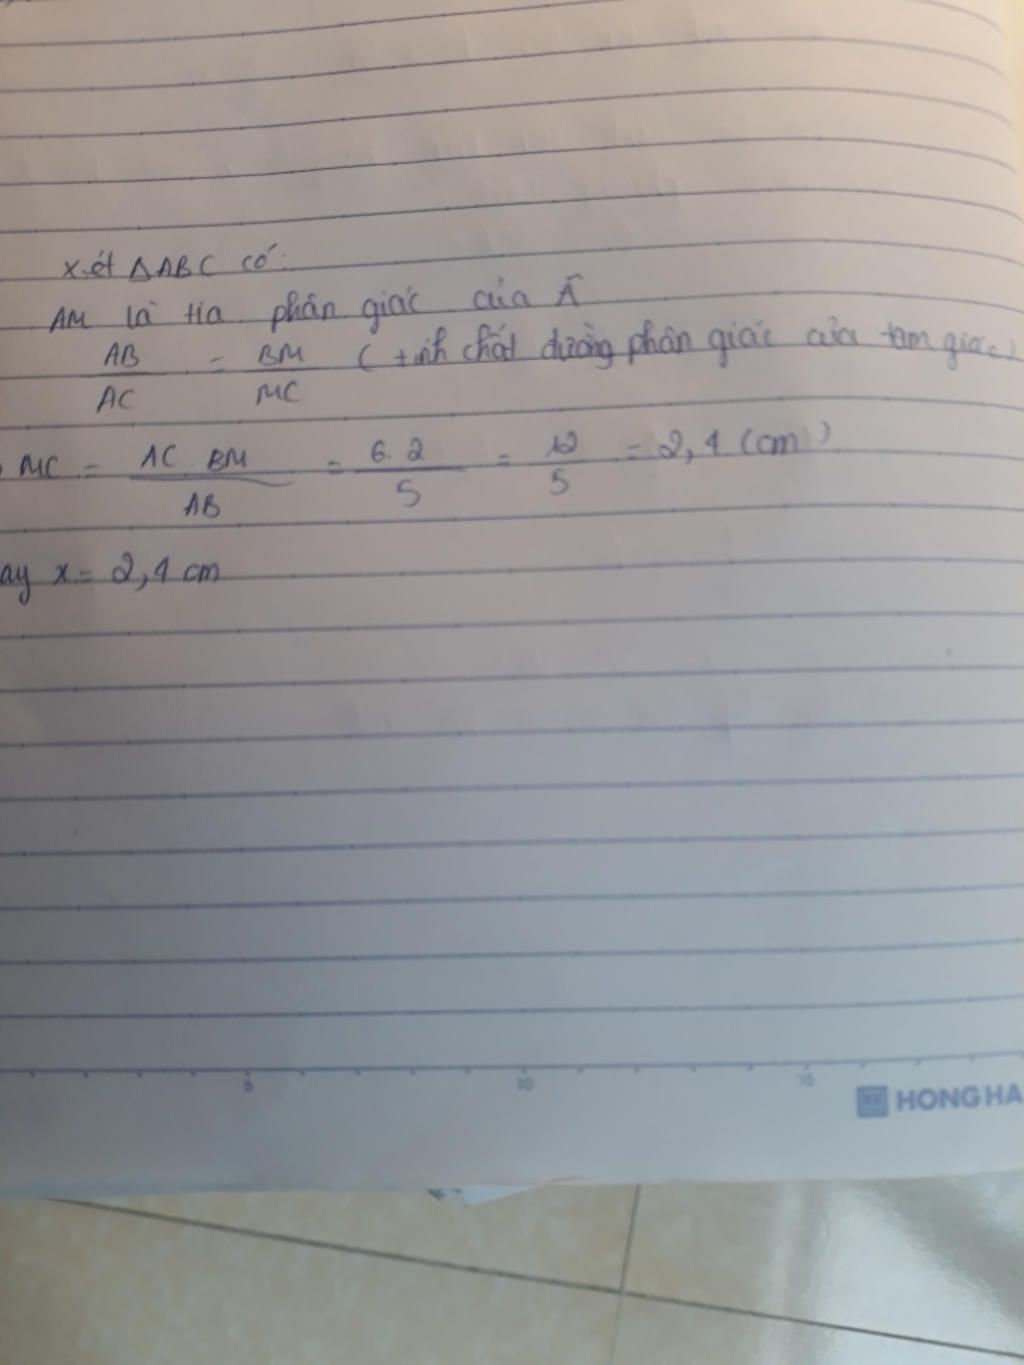 Xét ΔABC có:
AM là tia phân giác của Â
AB/AC = BM/MC (tính chất đường phân giác của tam giác)
MC = AC.BM/AB = 6.2/5 = 12/5 = 2,4 (cm)
ay x = 2,4 cm
5 10 15
HONG HA